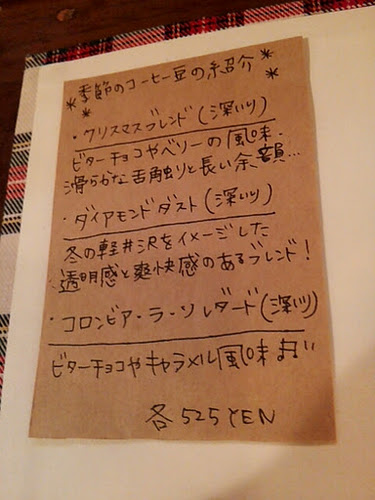 * 季節のコーヒー豆の紹介 *
・クリスマスブレンド(深いり)
ビターチョコやベリーの風味.
滑らかな舌触りと長い余韻…
・ダイアモンドダスト(深いり)
冬の軽井沢をイメージした
透明感と爽快感のあるブレンド!
・コロンビア・ラ・ソレダード(深いり)
ビターチョコやキャラメル風味
各525YEN